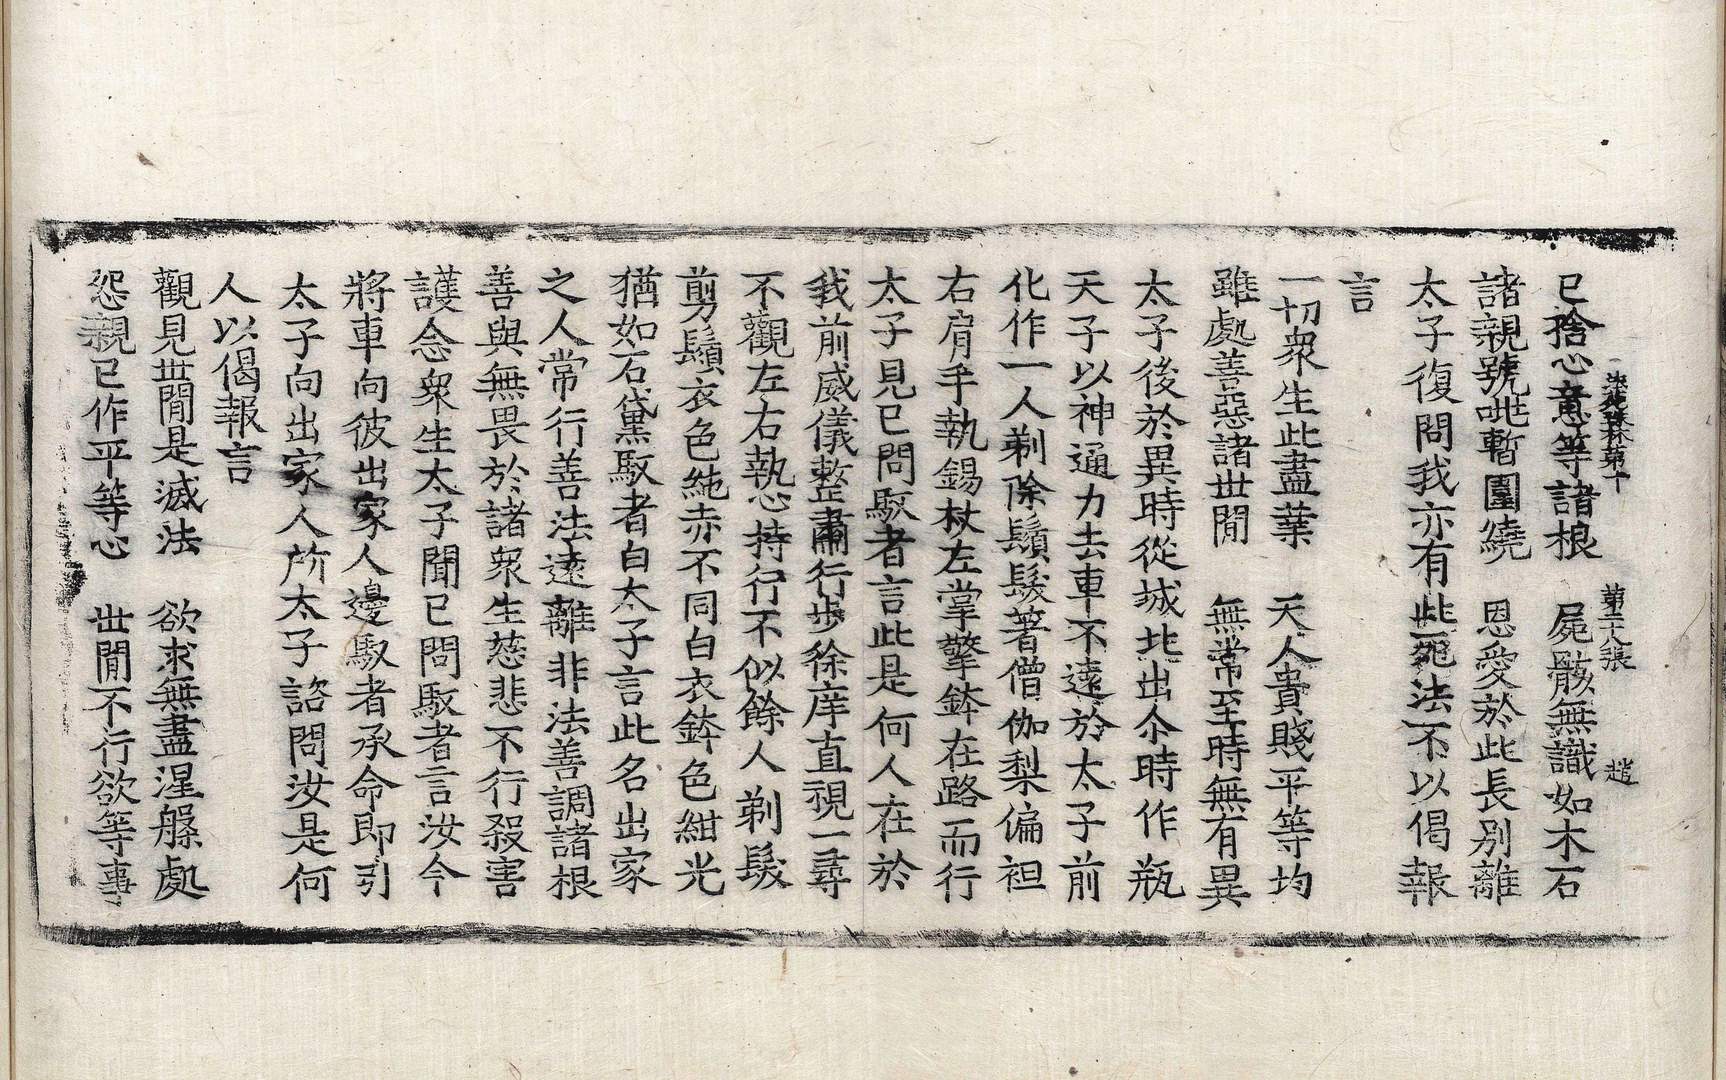 法苑珠林第十　第二十八張　趙
已捨心意等諸根　屍骸無識如木石
諸親號咷暫圍繞　恩愛於此長別離
太子復問我亦有此死法不以偈報
言
一切衆生此盡業　天人貴賤平等均
雖處善惡諸世間　無常至時無有異
太子後於異時從城北出尒時作瓶
天子以神通力去車不遠於太子前
化作一人剃除鬚髮著僧伽梨偏袒
右肩手執錫杖左掌擎鉢在路而行
太子見已問馭者言此是何人在於
我前威儀整肅行步徐庠直視一尋
不觀左右執心持行不似餘人剃髮
剪鬚衣色純赤不同白衣鉢色紺光
猶如石黛馭者白太子言此名出家
之人常行善法遠離非法善調諸根
善與無畏於諸衆生慈悲不行殺害
護念衆生太子聞已問馭者言汝今
將車向彼出家人邊馭者承命即引
太子向出家人所太子諮問汝是何
人以偈報言
觀見世間是滅法　欲求無盡涅槃處
怨親已作平等心　世間不行欲等事